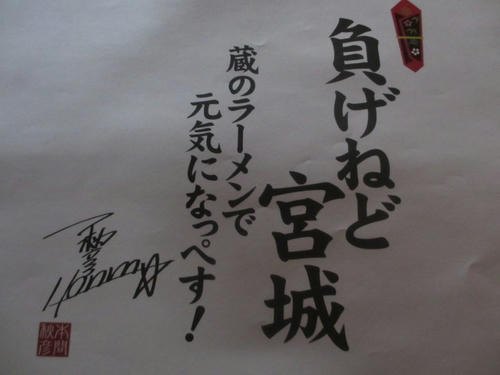 負げねど
宮城
蔵のラーメンで
元気になっぺす！
本間
秋彦